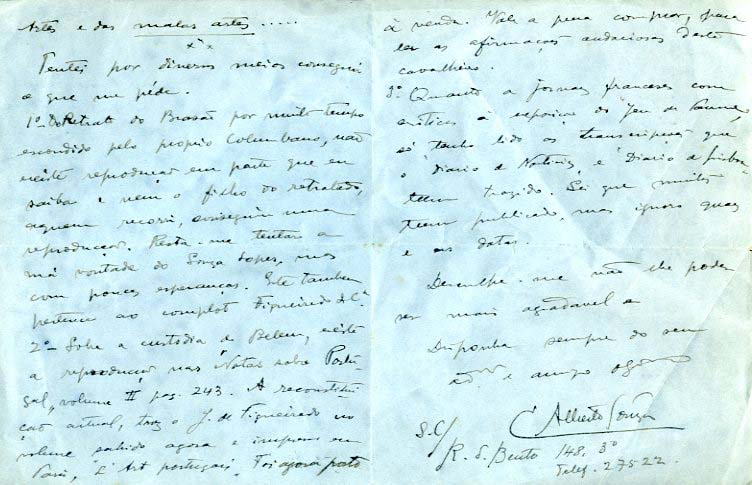 Artes e das malas artes .....
x x x
Tentei por diversos meios conseguir
o que me péde.
1º - O Retrato do Brasão por muito tempo
escondido pelo proprio Columbano, não
existe reproducção em parte que eu
saiba e nem o filho do retratado,
a quem recorri, conseguiu uma
reproducção. Resta-me tentar a
má vontade do Souza Lopes, mas
com poucas esperanças. Este tambem
pertence ao complot Figueiredo & Cª
2º - Sobre a custodia de Belem, existe
a reproducção nas Notas sobre Portu-
gal, volume II pag. 243. A reconstitui-
ção actual, traz o J. de Figueiredo no
volume sahido agora e impresso em
Paris, L'Art portugais. Foi agora posto
à venda. Vale a pena comprar, para
ler as afirmações audaciosas deste
cavalheiro.
3º Quanto a jornaes franceses com
criticas à exposição do Jeu de Paume,
só tenho lido as transcripções que
o Diario de Noticias e Diario de Lisboa
teem trazido. Sei que muitos
teem publicado, mas ignoro quaes
e as datas.
Desculpe-me não lhe poder
ser mais agradavel e
Disponha sempre do seu
admor e amigo obgdo
Alberto Souza
S.C/
R. S. Bento 148, 3º
Telef. 27522.